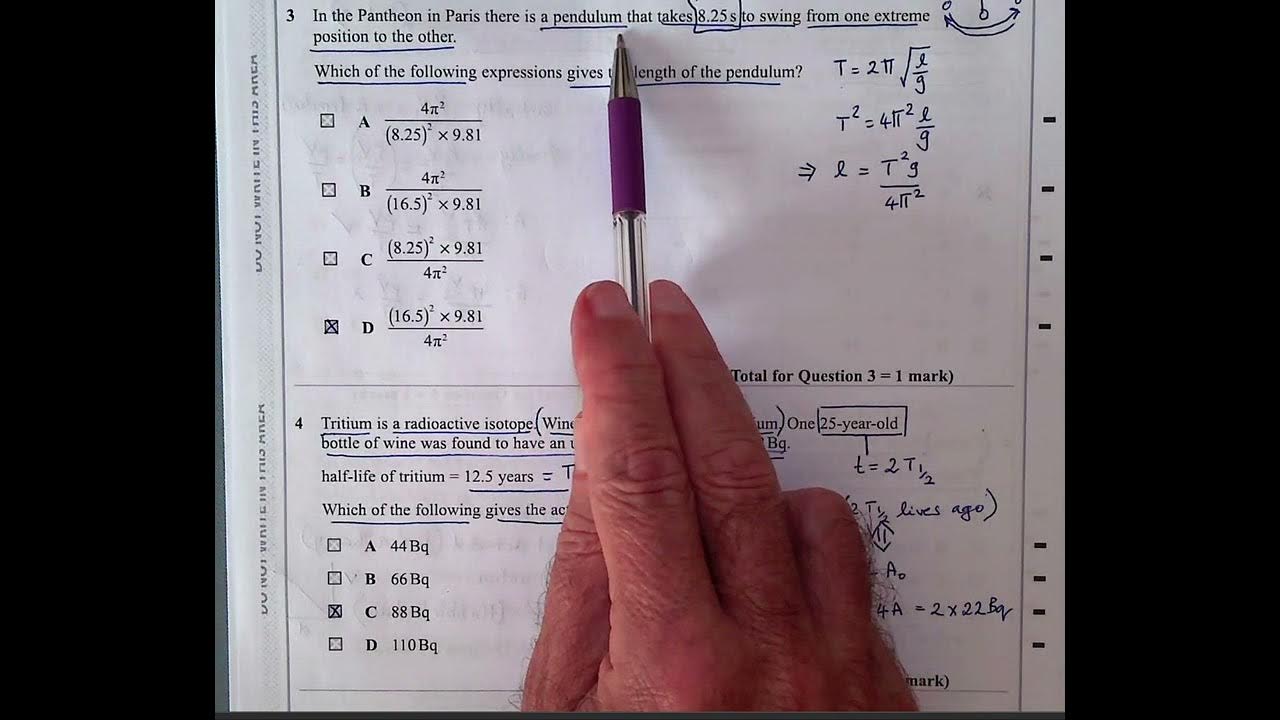 3 In the Pantheon in Paris there is a pendulum that takes 8.25 s to swing from one extreme
position to the other.
Which of the following expressions gives length of the pendulum?
T = 2π √(l/g)
T² = 4π² l/g
⇒ l = T²g/4π²
A 4π²/((8.25)² × 9.81)
B 4π²/((16.5)² × 9.81)
C ((8.25)² × 9.81)/4π²
D ((16.5)² × 9.81)/4π²
Total for Question 3 = 1 mark)
4 Tritium is a radioactive isotope. (Wine um) One 25-year-old
bottle of wine was found to have an Bq.
t = 2 T½
half-life of tritium = 12.5 years = T
Which of the following gives the
(2 T½ lives ago)
A 44 Bq
A₀
B 66 Bq
C 88 Bq
4A = 2 × 22 Bq
D 110 Bq
mark)
DO NOT WRITE IN THIS AREA
DO NOT WRITE IN THIS AREA